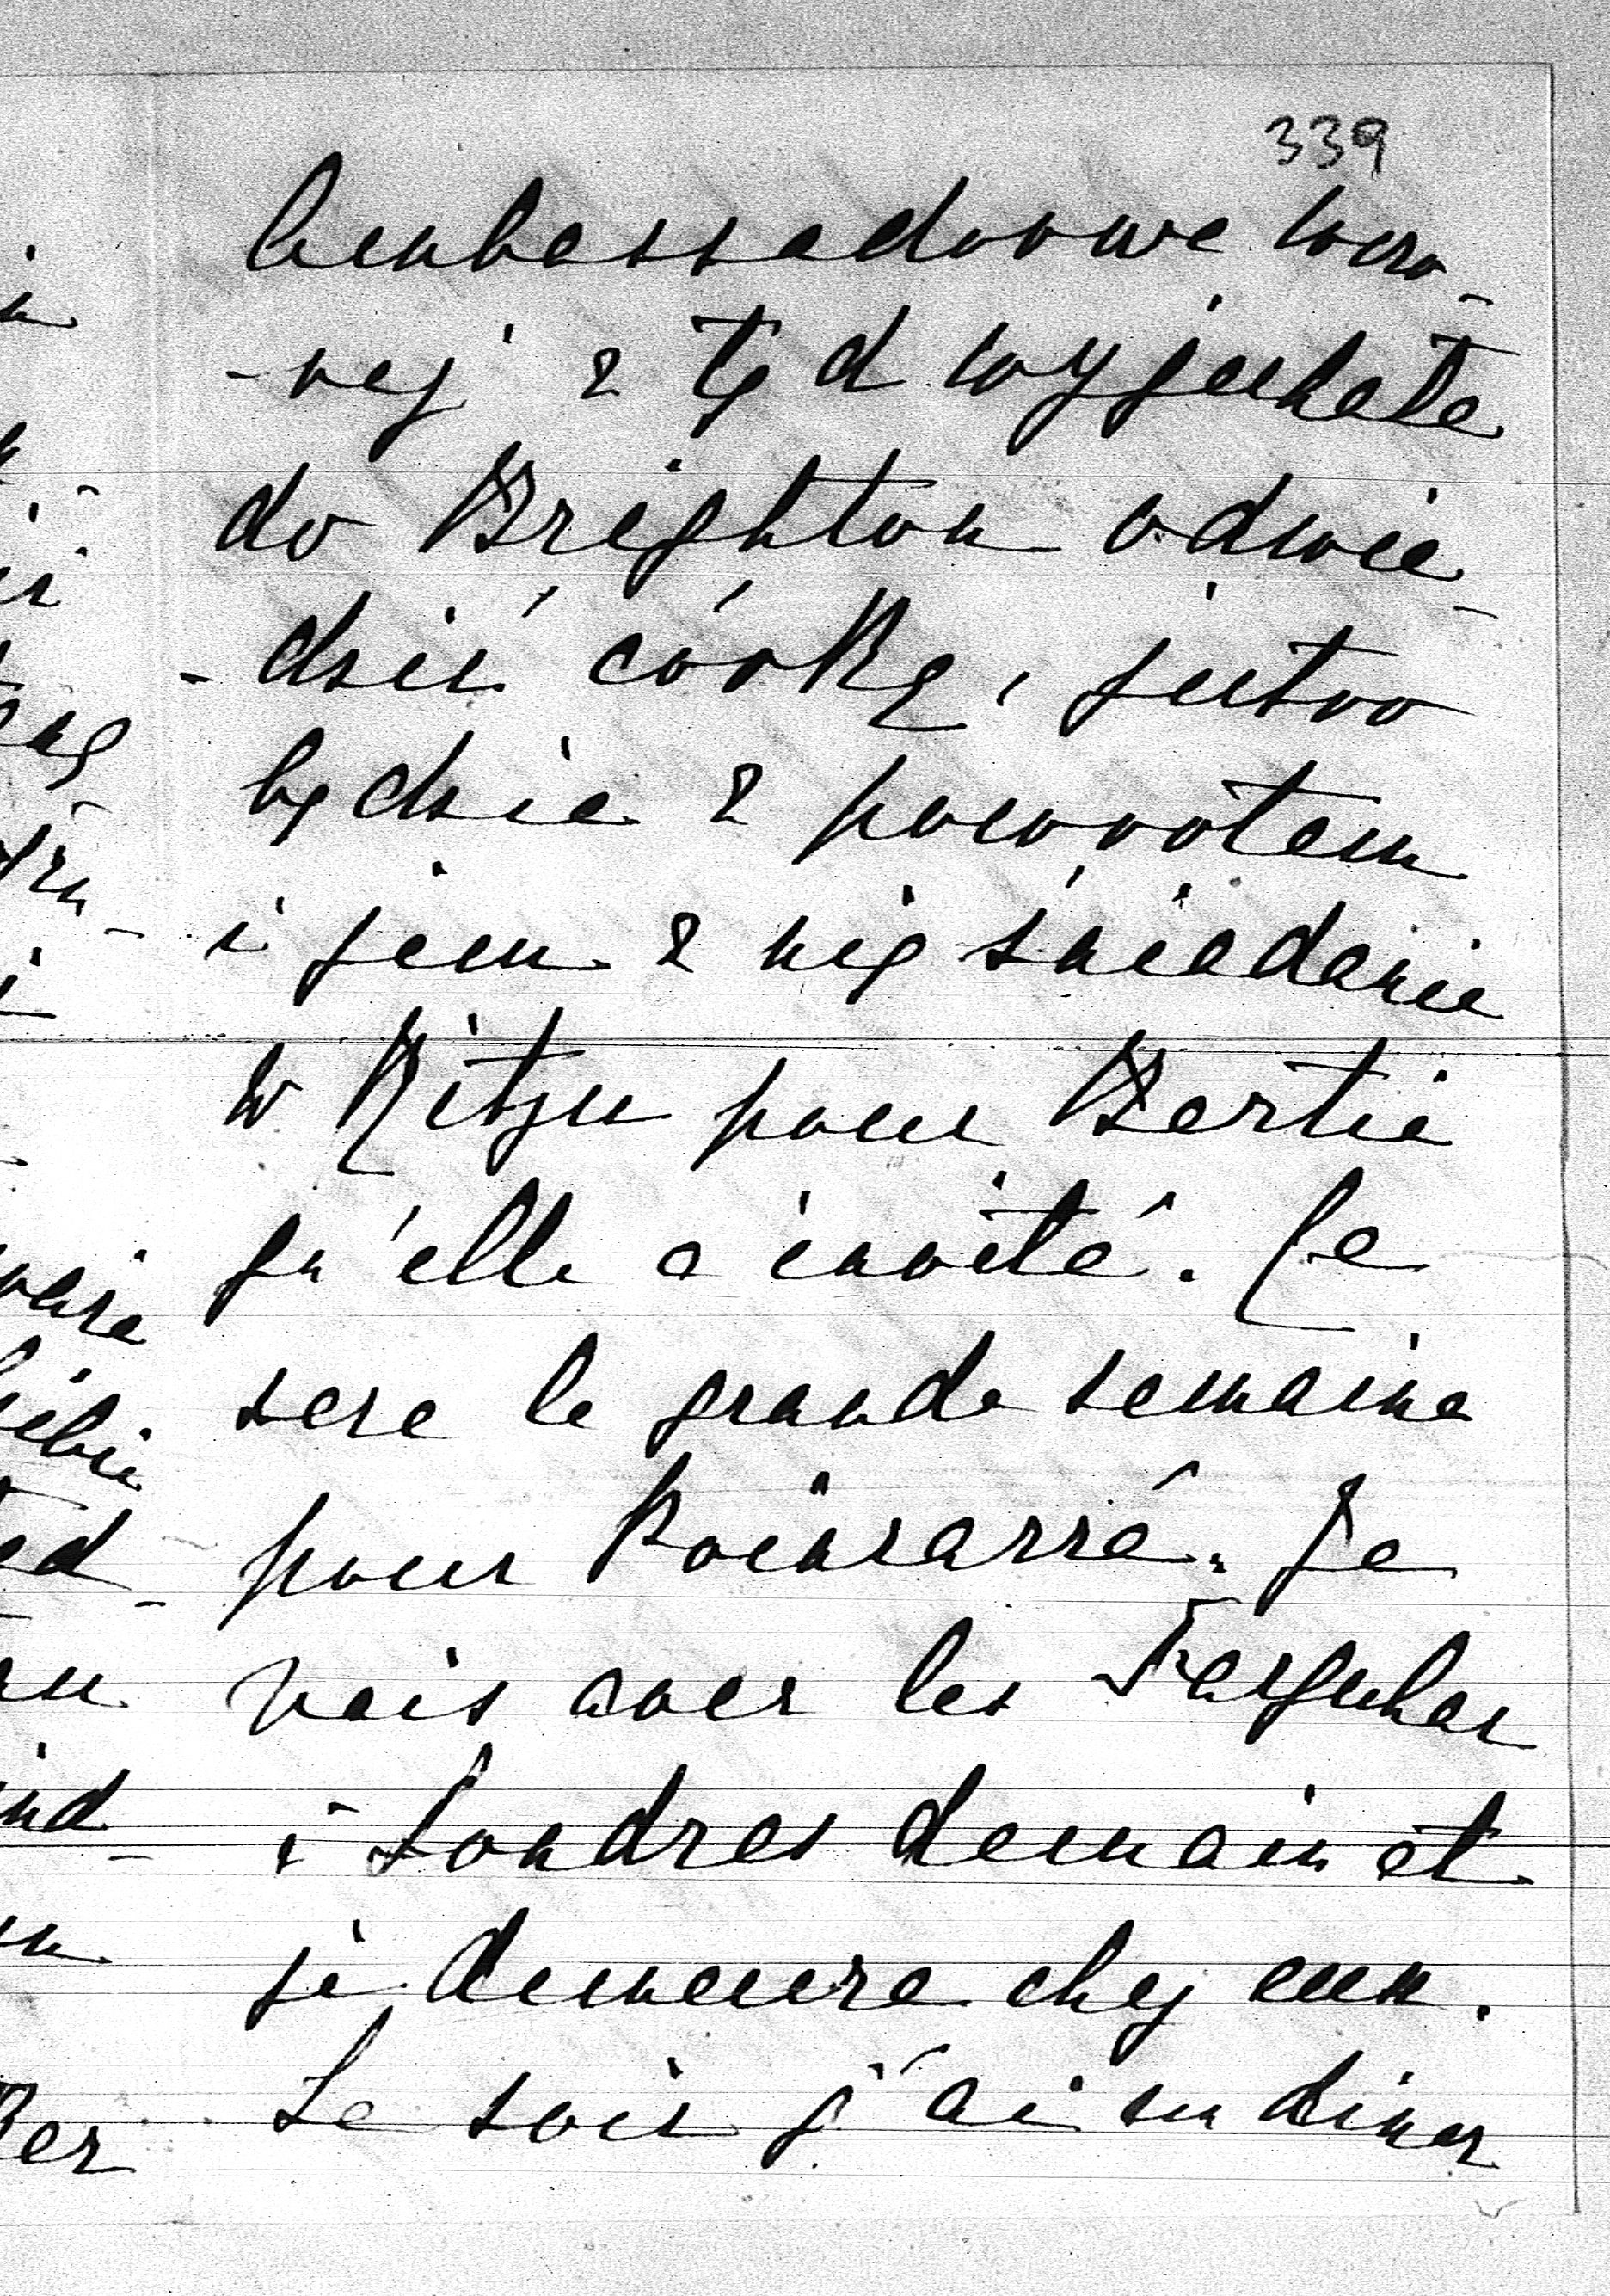 339
Ambassadorowe wczo-
-raj z tąd wyjechała
do Brighton odwie-
-dzić córkę, jutro
będzie z powrotem
i jem z nią śniadanie
w Ritzu pour Bertie
qu'elle a invité. Ce
sera la grande semaine
pour Poincarré. Je
vais avec les Farquhar
à Londres demain et
je demeure chez eux.
Le soir j'ai un diner